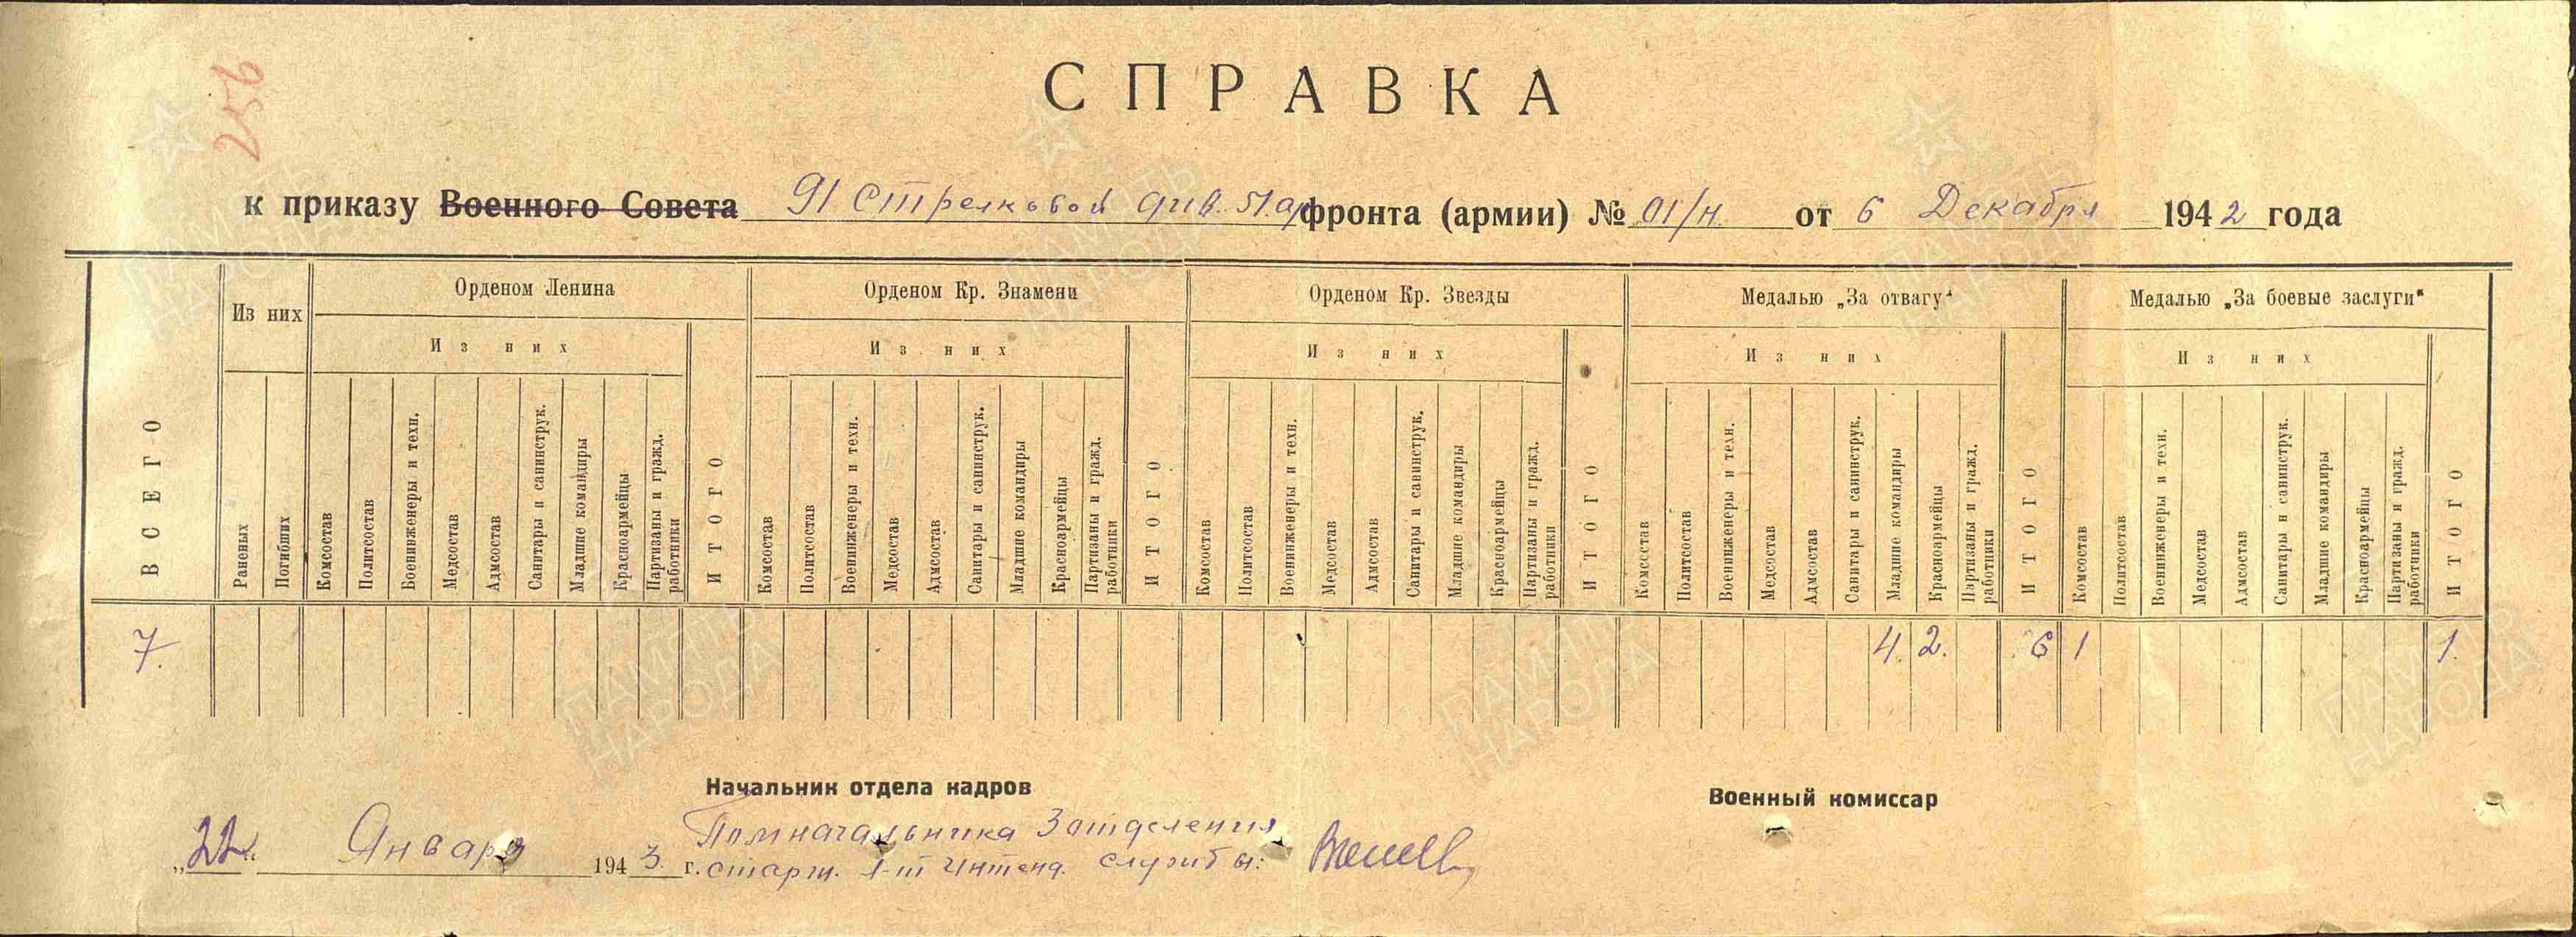 256
СПРАВКА
к приказу Военного Совета 91 Стрелковой див. 51.ар фронта (армии) № 01/н. от 6 Декабря 1942 года
ВСЕГО
Из них
Раненых
Погибших
Орденом Ленина
Из них
Комсостав
Политсостав
Военинженеры и техн.
Медсостав
Адмсостав
Санитары и санинструк.
Младшие командиры
Красноармейцы
Партизаны и гражд.
работники
ИТОГО
Орденом Кр. Знамени
Из них
Комсостав
Политсостав
Военинженеры и техн.
Медсостав
Адмсостав
Санитары и санинструк.
Младшие командиры
Красноармейцы
Партизаны и гражд.
работники
ИТОГО
Орденом Кр. Звезды
Из них
Комсостав
Политсостав
Военинженеры и техн.
Медсостав
Адмсостав
Санитары и санинструк.
Младшие командиры
Красноармейцы
Партизаны и гражд.
работники
ИТОГО
Медалью „За отвагу“
Из них
Комсостав
Политсостав
Военинженеры и техн.
Медсостав
Адмсостав
Санитары и санинструк.
Младшие командиры
Красноармейцы
Партизаны и гражд.
работники
ИТОГО
Медалью „За боевые заслуги“
Из них
Комсостав
Политсостав
Военинженеры и техн.
Медсостав
Адмсостав
Санитары и санинструк.
Младшие командиры
Красноармейцы
Партизаны и гражд.
работники
ИТОГО
7. 4. 2. 6 1 1.
Начальник отдела кадров
Военный комиссар
Помначальника 3 отделения
„22“ Января 1943 г. старш. т-т Интенд. службы:
ПАМЯТЬ НАРОДА